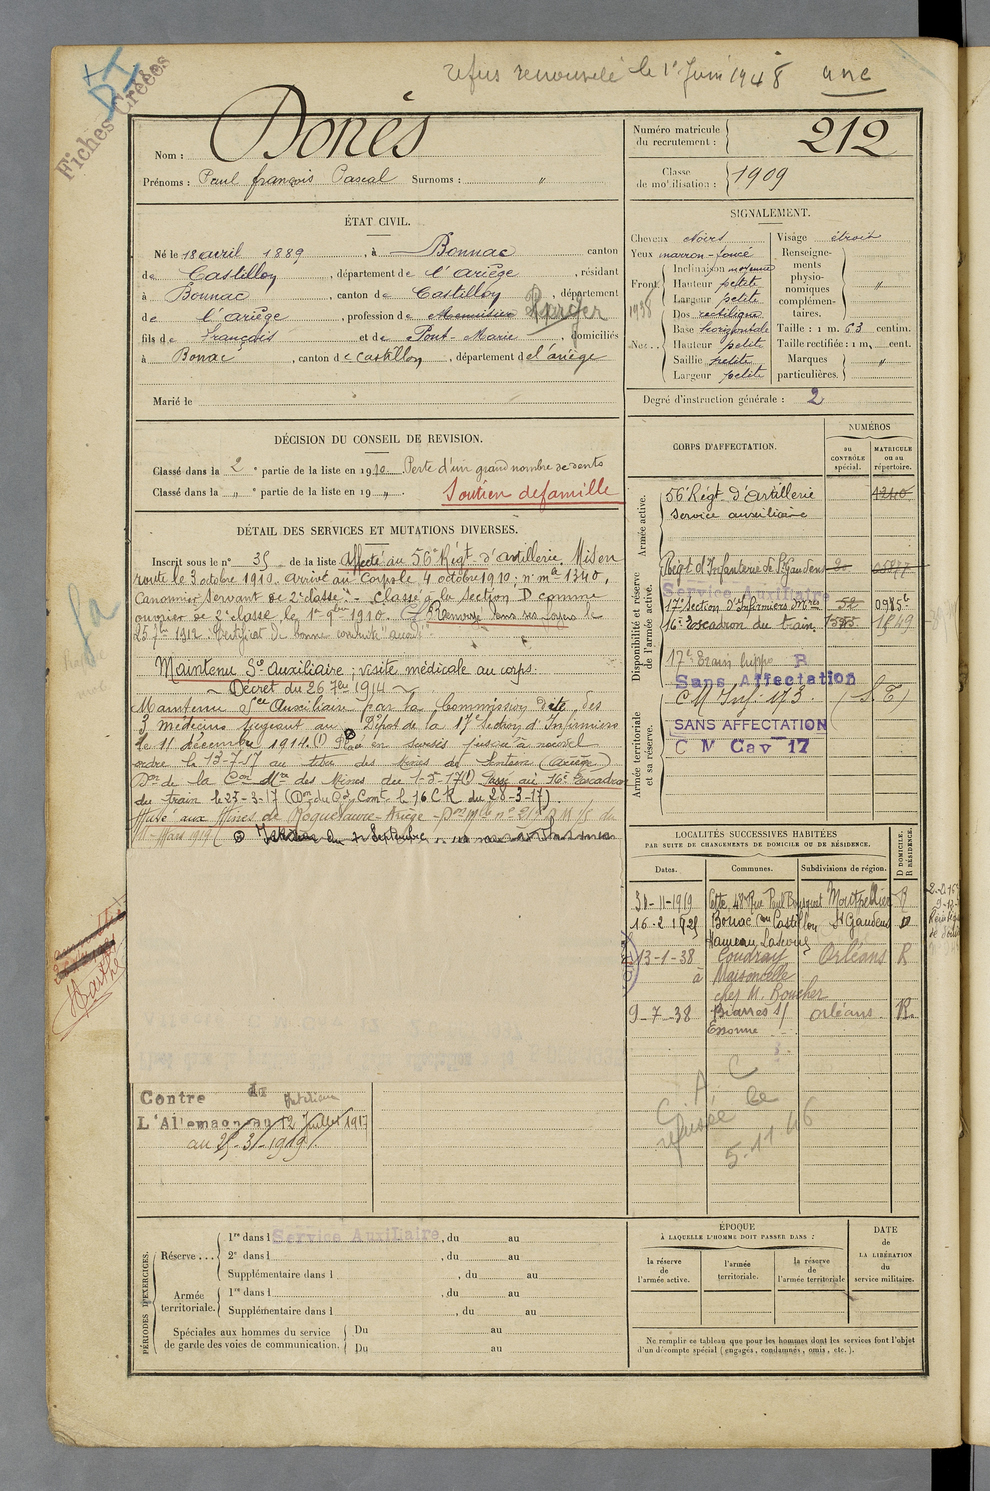 refus renouvelé le 1er Juin 1948
Fiches Créées
Nom : Donès
Prénoms : Paul françois Pascal Surnoms : "
Numéro matricule du recrutement : 212
Classe de mobilisation : 1909
ÉTAT CIVIL.
Né le 18 avril 1889, à Bonnac canton
de Castillon, département de l'ariège, résidant
à Bonnac, canton de Castillon, département
de l'ariège, profession de Menuisier Berger
fils de François et de Pont-Marie, domiciliés
à Bonac, canton de Castillon, département de l'ariège
Marié le
SIGNALEMENT.
Cheveux Noirs
Yeux marron-foncé
Front Inclinaison moyenne
Hauteur petite
Largeur petite
Nez Dos rectiligne
Base horizontale
Hauteur petite
Saillie petite
Largeur petite
Visage étroit
Renseignements physionomiques complémentaires. "
Taille : 1 m. 63 centim.
Taille rectifiée : 1 m. cent.
Marques particulières. "
1938
Degré d'instruction générale : 2
DÉCISION DU CONSEIL DE REVISION.
Classé dans la 2e partie de la liste en 1910. Perte d'un grand nombre de dents
Classé dans la " e partie de la liste en 19 " .
Soutien de famille
DÉTAIL DES SERVICES ET MUTATIONS DIVERSES.
Inscrit sous le n° 35 de la liste Affecté au 56e Régt d'Artillerie. Mis en
route le 3 octobre 1910. arrivé au Corps le 4 octobre 1910; n° mle 1340,
Canonnier Servant de 2e classe. Classé à la Section D comme
ouvrier de 2e classe le 1er 9bre 1910. Renvoyé dans ses foyers le
25 7bre 1912. Certificat de bonne conduite accordé.
Maintenu Sce Auxiliaire; visite médicale au corps.
Décret du 26 7bre 1914
Maintenu Sce Auxiliaire par la Commission dite des
3 médecins siégeant au Dépôt de la 17e Section d'Infirmiers
le 11 décembre 1914. (1) Placé en sursis jusqu'à nouvel
ordre le 13-7-17 au titre des Mines de Sentein (Ariège)
Don de la Con Mre des Mines du 1-5-17 (1) Passé au 16e Escadron
du train le 25-3-17 (Don du Gal Comt le 16 CR du 28-3-17).
CORPS D'AFFECTATION.
NUMÉROS
au CONTRÔLE spécial.
MATRICULE ou au répertoire.
Armée active.
56e Régt d'Artillerie 1340
Service auxiliaire
Disponibilité et réserve de l'armée active.
Régt d'Infanterie de St Gaudens
Service Auxiliaire
17e Section d'Infirmiers Mres 52
16e Escadron du train 1849
17e Train hippo
Sans Affectation
Armée territoriale et sa réserve.
CM Inf. 173 (S.T)
SANS AFFECTATION
C M Cav 17
LOCALITÉS SUCCESSIVES HABITÉES
PAR SUITE DE CHANGEMENTS DE DOMICILE OU DE RÉSIDENCE.
Dates.
Communes.
Subdivisions de région.
D DOMICILE, R RÉSIDENCE.
30-11-1919 Cette, 48 Rue Paul Bousquet Montpellier R
16-2-1925 Bonac con Castillon St Gaudens D
13-1-38 Coudray Orléans R
à Maisoncelle
chez M. Boucher
9-7-38 Briarres s/ Essonne Orléans R
C A C
refusée le
5.11 46
Contre
L'Allemagne au 12 Juillet 1917
au 25-3-1919
PÉRIODES D'EXERCICES.
Réserve . . .
1re dans l Service Auxiliaire, du au
2e dans l , du au
Supplémentaire dans l , du au
Armée territoriale.
1re dans l , du au
Supplémentaire dans l , du au
Spéciales aux hommes du service de garde des voies de communication.
Du au
Du au
ÉPOQUE
À LAQUELLE L'HOMME DOIT PASSER DANS :
la réserve de l'armée active.
l'armée territoriale.
la réserve de l'armée territoriale
DATE de LA LIBÉRATION du service militaire.
Ne remplir ce tableau que pour les hommes dont les services font l'objet
d'un décompte spécial (engagés, condamnés, omis, etc.).